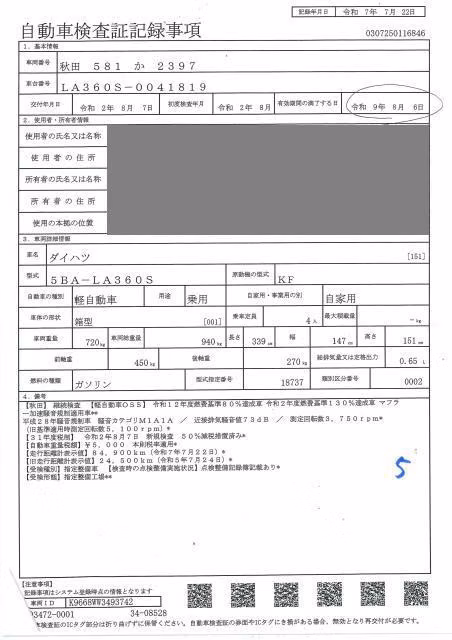 記録年月日 令和 7年 7月 22日
自動車検査証記録事項
0307250116846
1. 基本情報
車両番号 秋田 581 か 2397
車台番号 LA360S-0041819
交付年月日 令和 2年 8月 7日 初度検査年月 令和 2年 8月 有効期間の満了する日 令和 9年 8月 6日
2. 使用者・所有者情報
使用者の氏名又は名称
使用者の住所
所有者の氏名又は名称
所有者の住所
使用の本拠の位置
3. 車両詳細情報
車名 ダイハツ [151]
型式 5BA-LA360S 原動機の型式 KF
自動車の種別 軽自動車 用途 乗用 自家用・事業用の別 自家用
車体の形状 箱型 [001] 乗車定員 4人 最大積載量 -kg
車両重量 720kg 車両総重量 940kg 長さ 339cm 幅 147cm 高さ 151cm
前軸重 450kg 後軸重 270kg 総排気量又は定格出力 0.65 L
燃料の種類 ガソリン 型式指定番号 18737 類別区分番号 0002
4. 備考
【秋田】 継続検査 【軽自動車OSS】 令和12年度燃費基準80%達成車 令和2年度燃費基準130%達成車 マフラ
ー加速騒音規制適用車**
平成28年騒音規制車 騒音カテゴリM1A1A / 近接排気騒音値73dB / 測定回転数3,750rpm*
(旧基準適用時測定回転数5,100rpm)*
【31年度税制】 令和2年8月7日 新規検査 50%減税措置済み*
【自動車重量税額】¥5,000 本則税率適用*
【走行距離計表示値】84,900km(令和7年7月22日)*
【旧走行距離計表示値】24,500km(令和5年7月24日)*
【受検種別】指定整備車 【検査時の点検整備実施状況】点検整備記録簿記載あり*
【受検形態】指定整備工場**
5
【注意事項】
記録事項はシステム登録時点の情報となります
車両ID K9668WW3493742
03472-0001 34-08528
検査証のICタグ部分は折り曲げずに保管ください。自動車検査証の券面やICタグにき損がある場合、無効となり再交付が必要です。